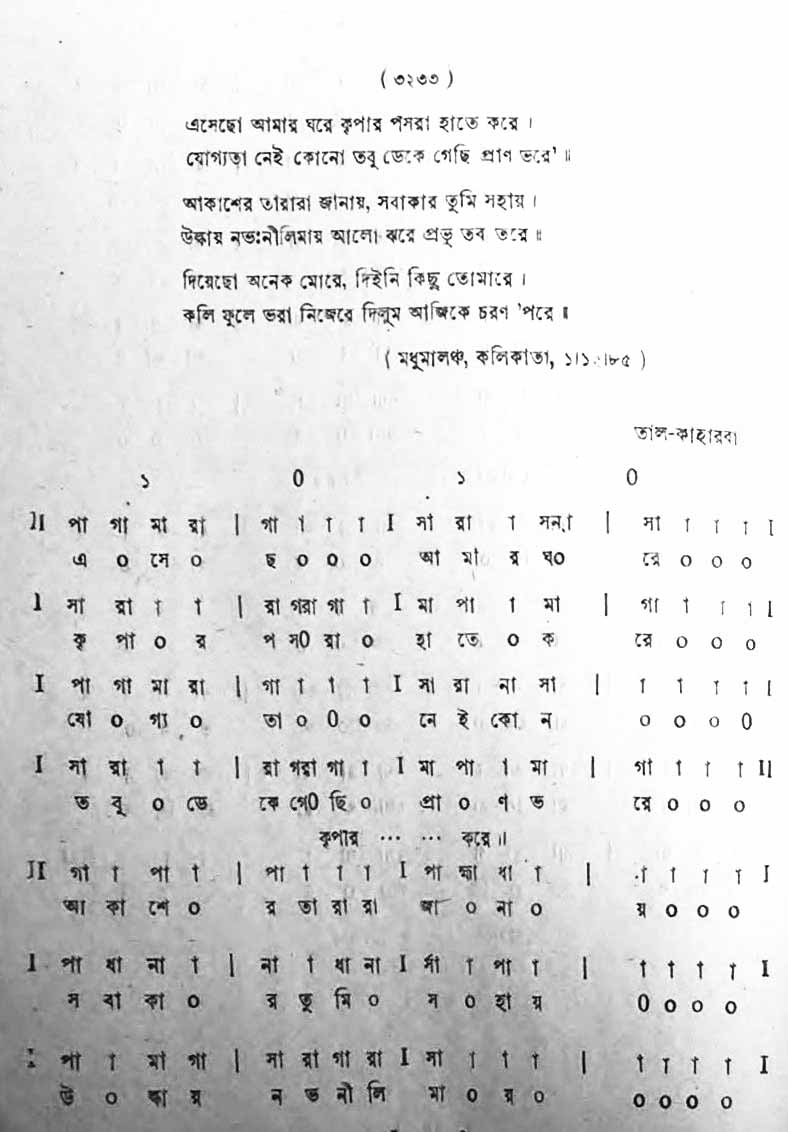 ( ৩২৩৩ )
এসেছো আমার ঘরে কৃপার পসরা হাতে করে ।
যোগ্যতা নেই কোনো তবু ডেকে গেছি প্রাণ ভরে' ॥
আকাশের তারারা জানায়, সবাকার তুমি সহায় ।
উল্কায় নভঃনীলিমায় আলো ঝরে প্রভু তব তরে ॥
দিয়েছো অনেক মোরে, দিইনি কিছু তোমারে ।
কলি ফুলে ভরা নিজেরে দিলুম আজিকে চরণ 'পরে ॥
( মধুমালঞ্চ, কলিকাতা, )
তাল-কাহারবা
১ 0 ১ 0
II পা গা মা রা | গা া া া I সা রা া সন়া | সা া া া I
এ ০ সে ০ ছ ০ ০ ০ আ মা র ঘ০ রে ০ ০ ০
I সা রা া া | রা গরা গা া I মা পা া মা | গা া া া I
কৃ পা ০ র প স০ রা ০ হা তে ০ ক রে ০ ০ ০
I পা গা মা রা | গা া া া I সা রা না সা | া া া া I
যো ০ গ্য ০ তা ০ 0 ০ নে ই কো ন ০ ০ ০ 0
I সা রা া া | রা গরা গা া I মা পা া মা | গা া া া II
ত বু ০ ডে কে গে0 ছি ০ প্রা ০ ণ ভ রে ০ ০ ০
কৃপার ... ... করে ॥
II গা া পা া | পা া া া I পা হ্মা ধা া | া া া া I
আ কা শে ০ র তা রা রা জা ০ না ০ য় ০ ০ ০
I পা ধা না া | না া ধা না I র্সা া পা া | া া া া I
স বা কা ০ র তু মি ০ স ০ হা য় 0 ০ ০ ০
I পা া মা গা | সা রা গা রা I সা া া া | া া া া I
উ ০ ল্কা য় ন ভ নী লি মা ০ য় ০ ০ ০ ০ ০